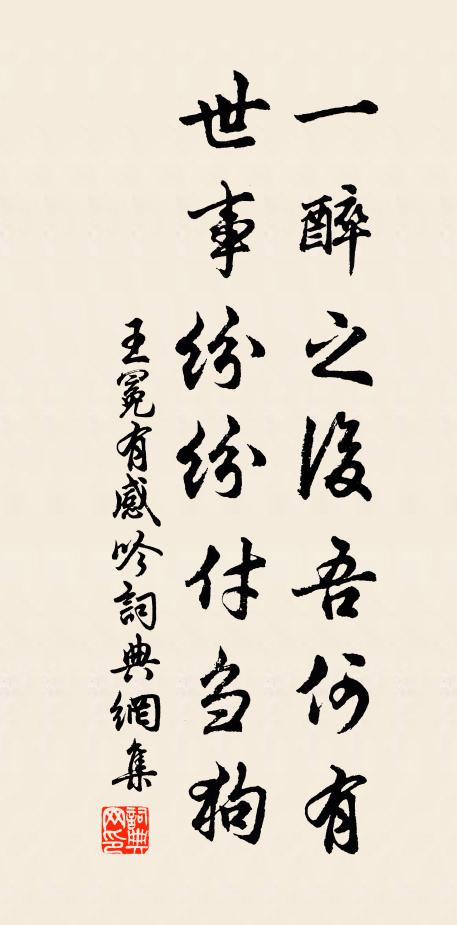 一醉之後吾何有
世事紛紛付刍狗
王冕有感吟詞典網集
詞典
网印